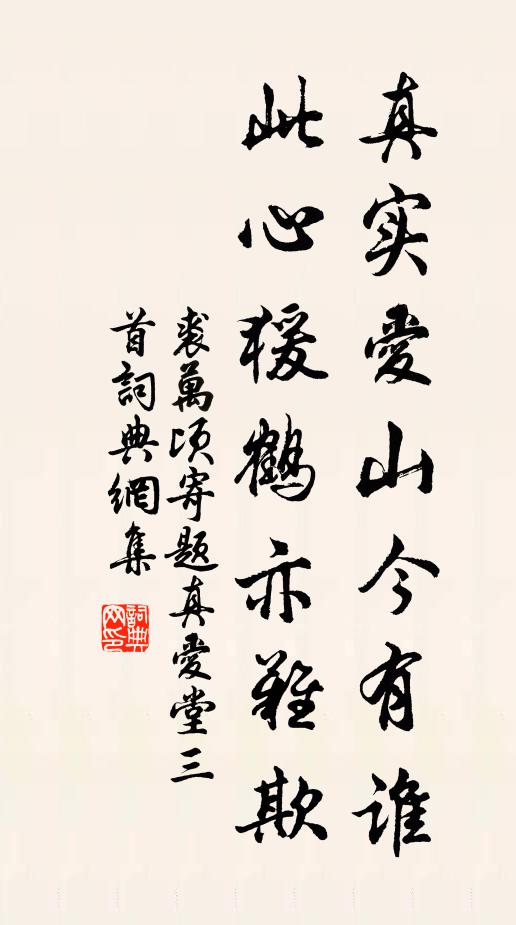 真实愛山今有谁
此心猨鹤亦難欺
裘萬頃寄題真愛堂三
首詞典網集
詞典
网印